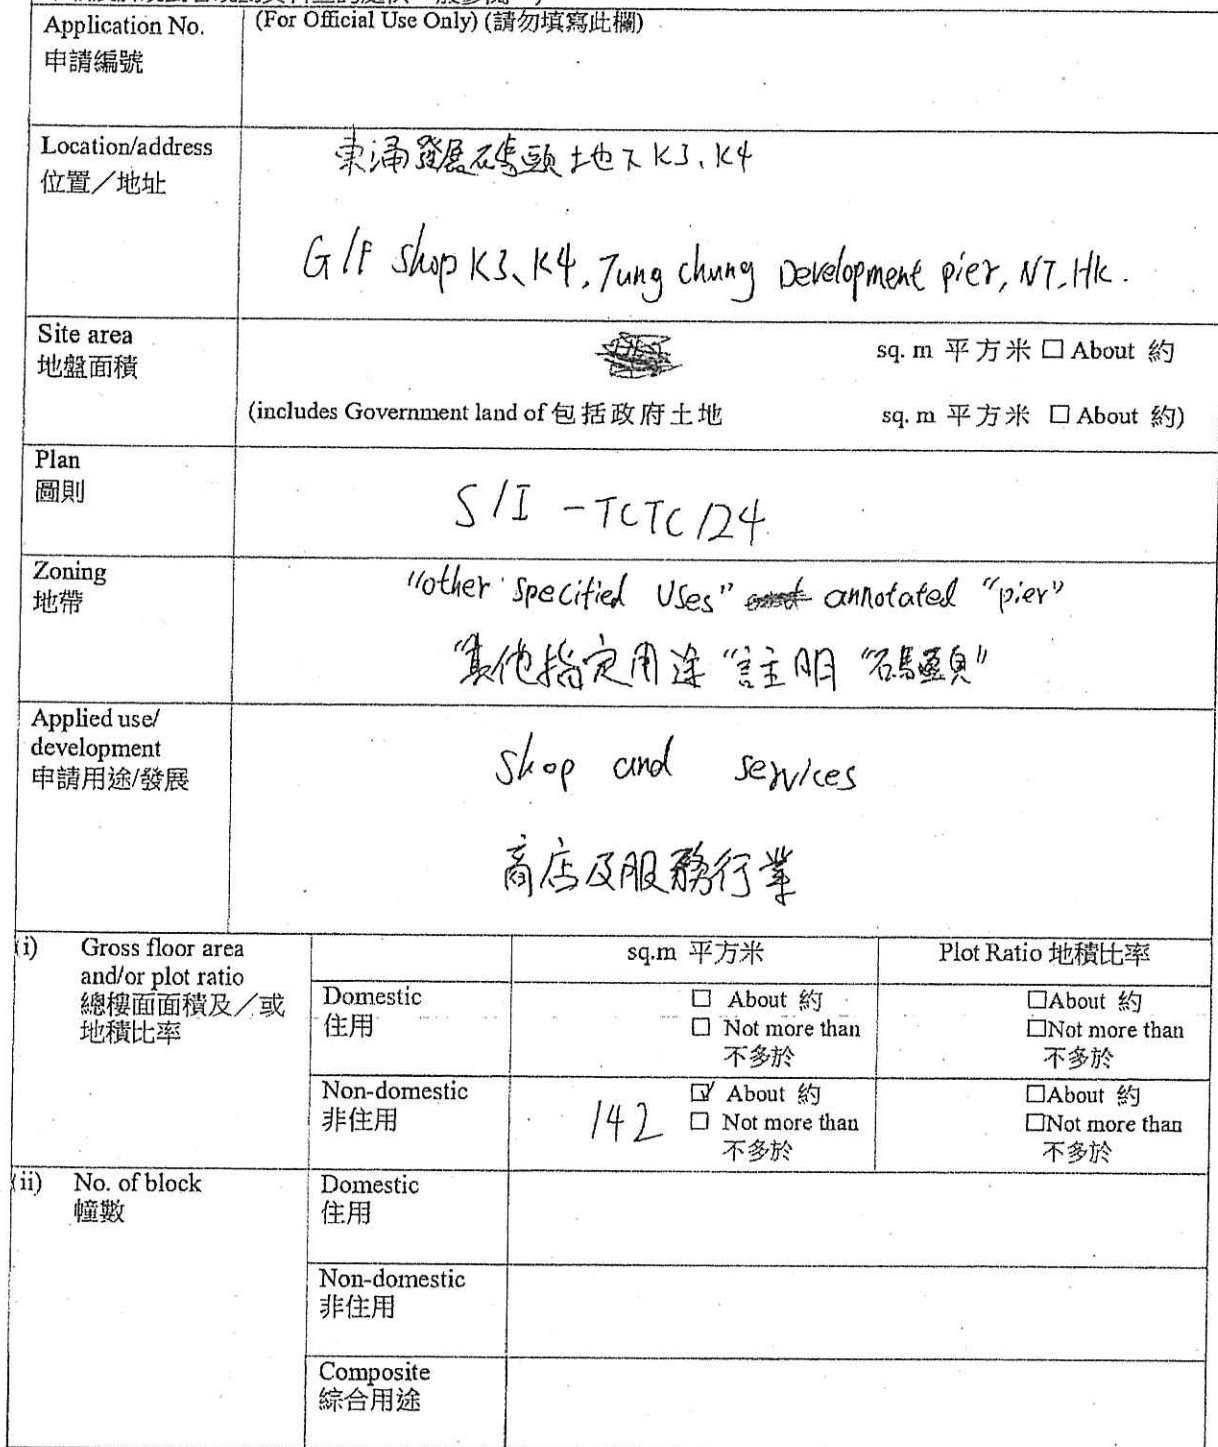 Application No.
申請編號
(For Official Use Only) (請勿填寫此欄)
Location/address
位置／地址
東涌發展碼頭地下 K3、K4
G/F Shop K3、K4, Tung chung Development pier, NT, HK.
Site area
地盤面積
sq. m 平方米 □ About 約
(includes Government land of 包括政府土地 sq. m 平方米 □ About 約)
Plan
圖則
S/I - TCTC/24
Zoning
地帶
"other specified Uses" annotated "pier"
"其他指定用途"註明"碼頭"
Applied use/
development
申請用途/發展
Shop and services
商店及服務行業
(i) Gross floor area
and/or plot ratio
總樓面面積及／或
地積比率
sq.m 平方米
Plot Ratio 地積比率
Domestic
住用
□ About 約
□ Not more than
不多於
□About 約
□Not more than
不多於
Non-domestic
非住用
142
☑ About 約
□ Not more than
不多於
□About 約
□Not more than
不多於
(ii) No. of block
幢數
Domestic
住用
Non-domestic
非住用
Composite
綜合用途